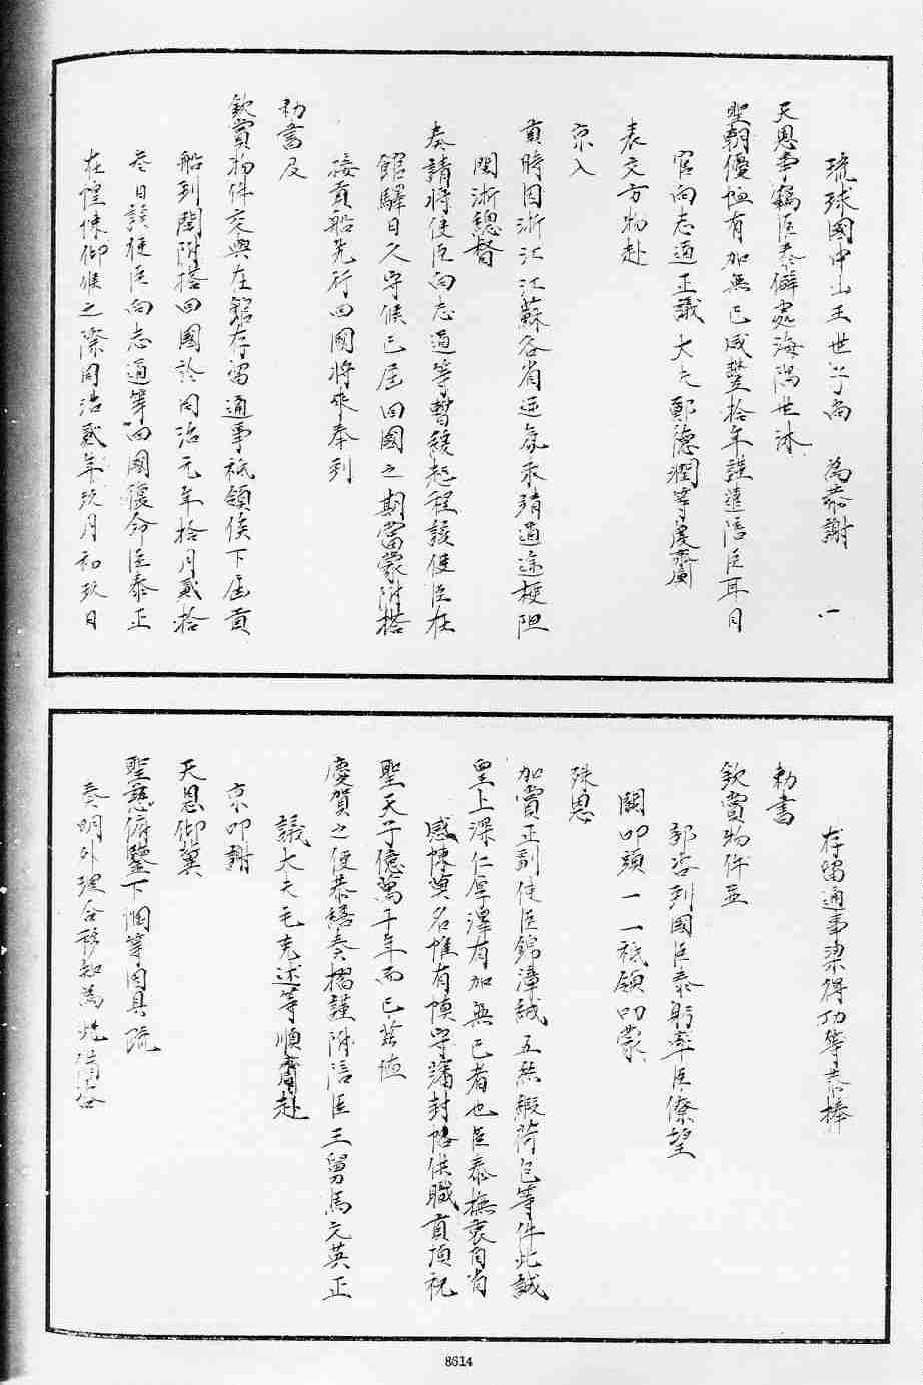 琉球國中山王世子尚　為恭謝
天恩事竊臣泰僻處海隅世沐
聖朝優恤有加無已咸豐拾年謹遣陪臣耳目
官向志道正議大夫鄭德潤等虔齎
表文方物赴
京入
貢時因浙江江蘇各省逆氛未靖道途梗阻
閩浙總督
奏請將使臣向志道等暫緩起程該使臣在
館驛日久守候已屆回國之期當蒙附搭
接貢船先行回國將來奉到
勅書及
欽賞物件交與在館存留通事祗領俟下屆貢
船到閩附搭回國於同治元年拾月貳拾
叁日該使臣向志道等回國復命臣泰正
在惶悚仰候之際同治貳年玖月初玖日
存留通事梁得功等恭捧
勅書
欽賞物件並
部咨到國臣泰躬率臣僚望
闕叩頭一一祗領叩蒙
殊恩
加賞正副使臣錦漳絨五絲緞荷包等件此誠
皇上深仁厚澤有加無已者也臣泰撫衷自省
感悚莫名惟有慎守藩封恪供職貢頂祝
聖天子億萬千年而已茲值
慶賀之便恭繕奏摺謹附陪臣三舅馬文英正
議大夫毛克述等順齎赴
京叩謝
天恩仰冀
聖慈俯鑒下悃等因具疏
奏明外理合移知為此備咨
8614